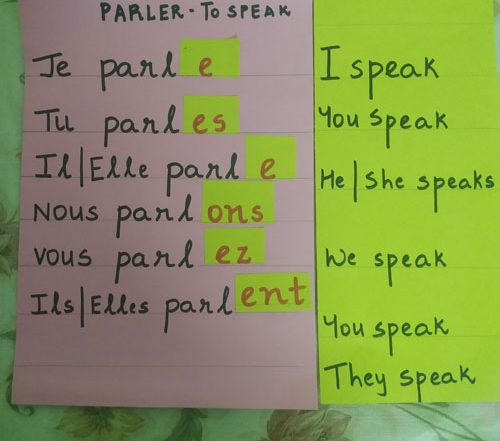 PARLER - TO SPEAK
Je parl e
I speak
Tu parl es
You speak
Il|Elle parl e
He|She speaks
Nous parl ons
We speak
vous parl ez
You speak
Ils|Elles parl ent
They speak